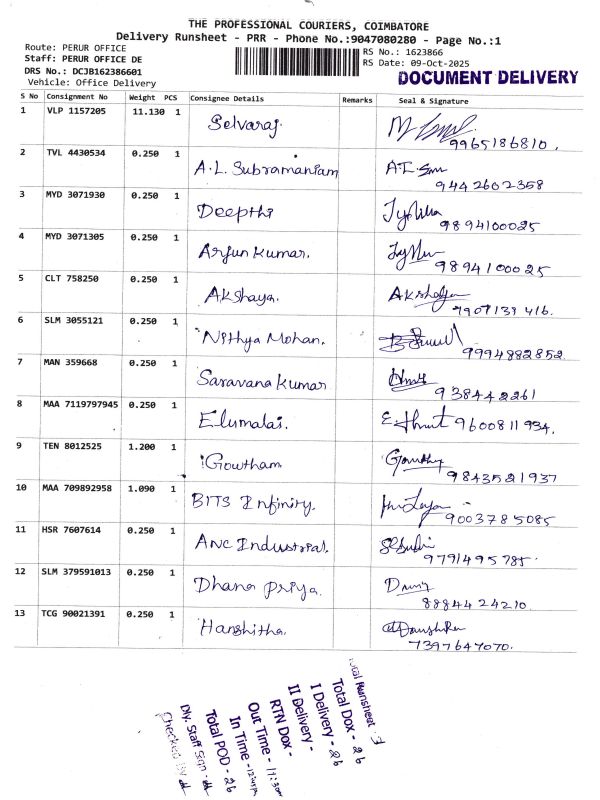 THE PROFESSIONAL COURIERS, COIMBATORE
Delivery Runsheet - PRR - Phone No.:9047080280 - Page No.:1
Route: PERUR OFFICE
Staff: PERUR OFFICE DE
DRS No.: DCJB162386601
Vehicle: Office Delivery
RS No.: 1623866
RS Date: 09-Oct-2025
DOCUMENT DELIVERY
S No Consignment No Weight PCS Consignee Details Remarks Seal & Signature
1 VLP 1157205 11.130 1 Selvaraj.
9965186810.
2 TVL 4430534 0.250 1 A.L. Subramaniam
9442602358
3 MYD 3071930 0.250 1 Deepthi
9894100025
4 MYD 3071305 0.250 1 Arjun Kumar.
9894100025
5 CLT 758250 0.250 1 Akshaya.
7907139416.
6 SLM 3055121 0.250 1 Nithya Mohan.
9994882852
7 MAN 359668 0.250 1 Saravana Kumar
938442261
8 MAA 7119797945 0.250 1 Elumalai. 9600811934.
9 TEN 8012525 1.200 1 Gowtham
9843521937
10 MAA 709892958 1.090 1 BITS Infinity.
9003785085
11 HSR 7607614 0.250 1 Anc Industrial.
9791495785.
12 SLM 379591013 0.250 1 Dhana Priya.
8884424210.
13 TCG 90021391 0.250 1 Hanshitha.
7397647070.
Total Runsheet - 3
Total Dox - 26
I Delivery - 26
II Delivery -
RTN Dox -
Out Time - 11:30
In Time -
Total POD - 26
Dly. Staff Sign -
Checked By